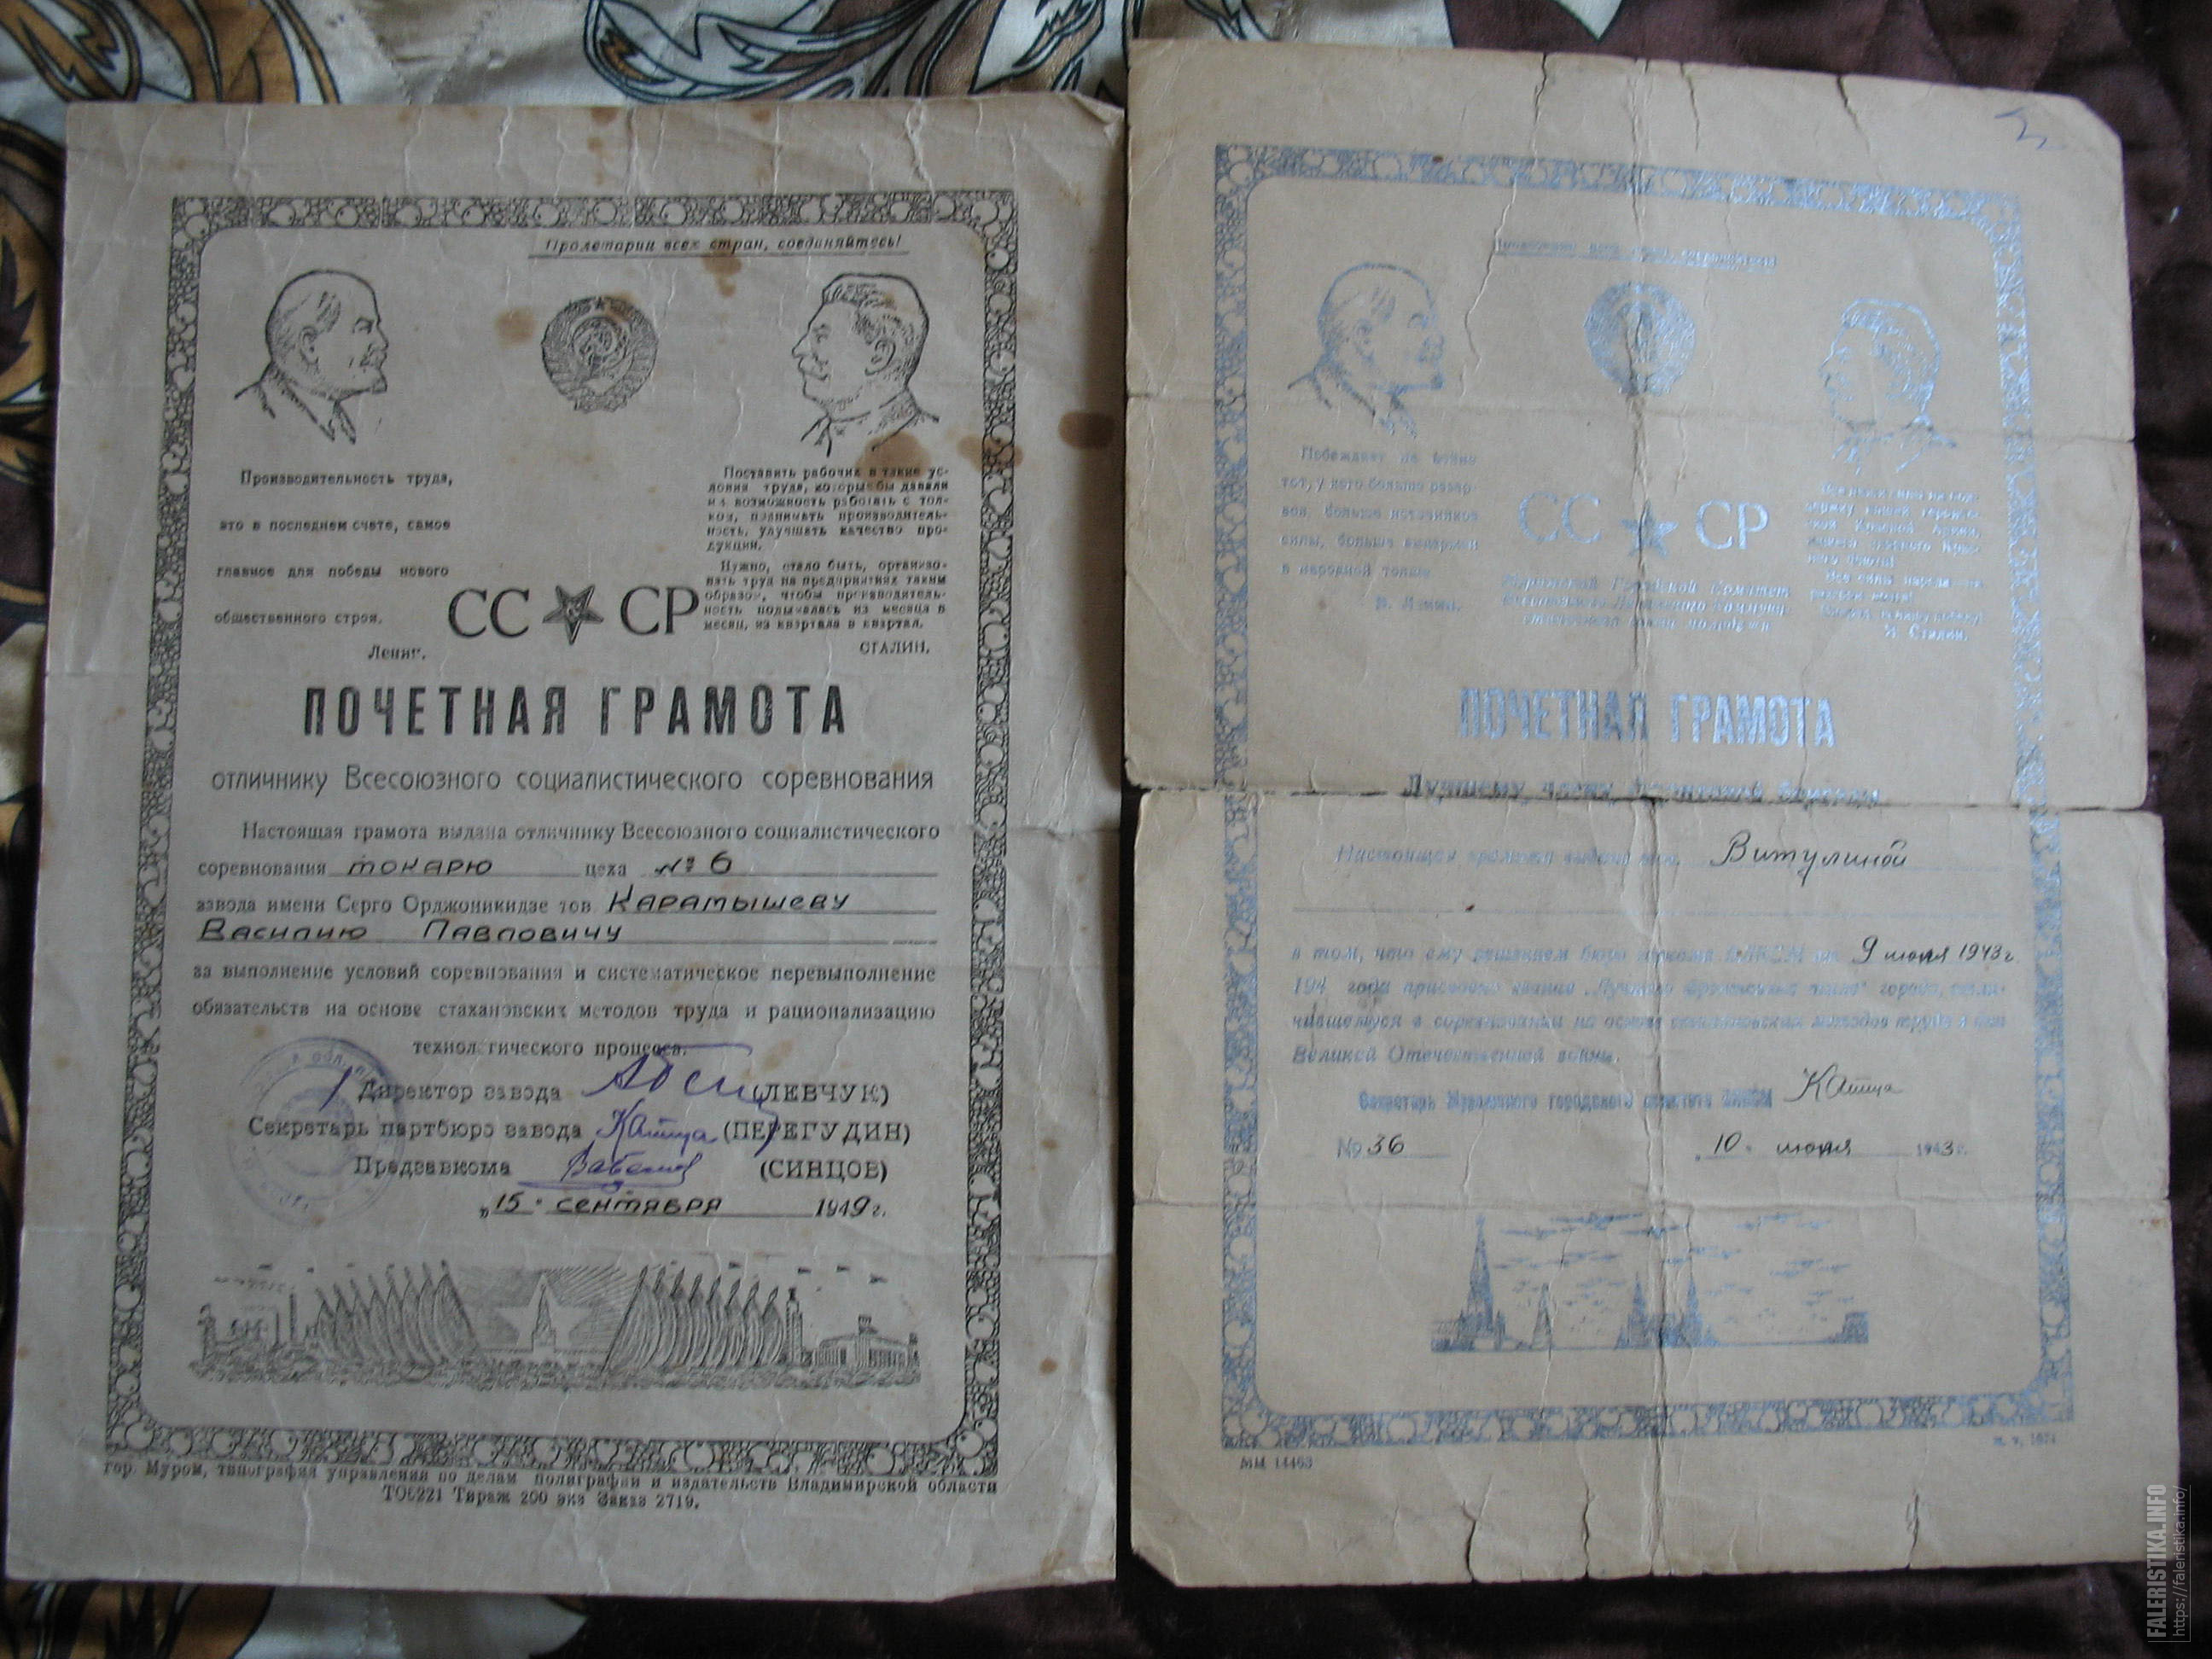 Пролетарии всех стран, соединяйтесь!
Производительность труда,
это в последнем счете, самое
главное для победы нового
общественного строя.
Ленин.
Поставить рабочих в такие ус-
ловия труда, которые бы давали
им возможность работать с тол-
ком, поднимать производитель-
ность, улучшать качество про-
дукции.
Нужно, стало быть, организо-
вать труд на предприятиях таким
образом, чтобы производитель-
ность подымалась из месяца в
месяц, из квартала в квартал.
СТАЛИН.
СС СР
ПОЧЕТНАЯ ГРАМОТА
отличнику Всесоюзного социалистического соревнования
Настоящая грамота выдана отличнику Всесоюзного социалистического
соревнования токарю цеха №6
завода имени Серго Орджоникидзе тов Каратышеву
Василию Павловичу
за выполнение условий соревнования и систематическое перевыполнение
обязательств на основе стахановских методов труда и рационализацию
технологического процесса.
Директор завода (ЛЕВЧУК)
Секретарь партбюро завода (ПЕРЕГУДИН)
Предзавкома (СИНЦОВ)
„15" сентября 1949 г.
гор. Муром, типография управления по делам полиграфии и издательств Владимирской области
ТО6221 Тираж 200 экз Заказ 2719.
Побеждает на войне
тот, у кого больше резер-
вов, больше источников
силы, больше выдержки
в народной толще.
В. Ленин.
СС СР
Все силы народа — на
И. Сталин.
Муромский Городской Комитет
ПОЧЕТНАЯ ГРАМОТА
Лучшему члену фронтовой бригады
Настоящая грамота выдана тов. Витулиной
в том, что ему решением бюро горкома ВЛКСМ от 9 июля 1943 г
194 года присвоено звание
на основе стахановских методов труда в дни
Великой Отечественной войны.
Секретарь Муромского городского комитета ВЛКСМ
№ 36 „10" июля 1943 г.
ММ 14463
FALERISTIKA.INFO
https://faleristika.info/